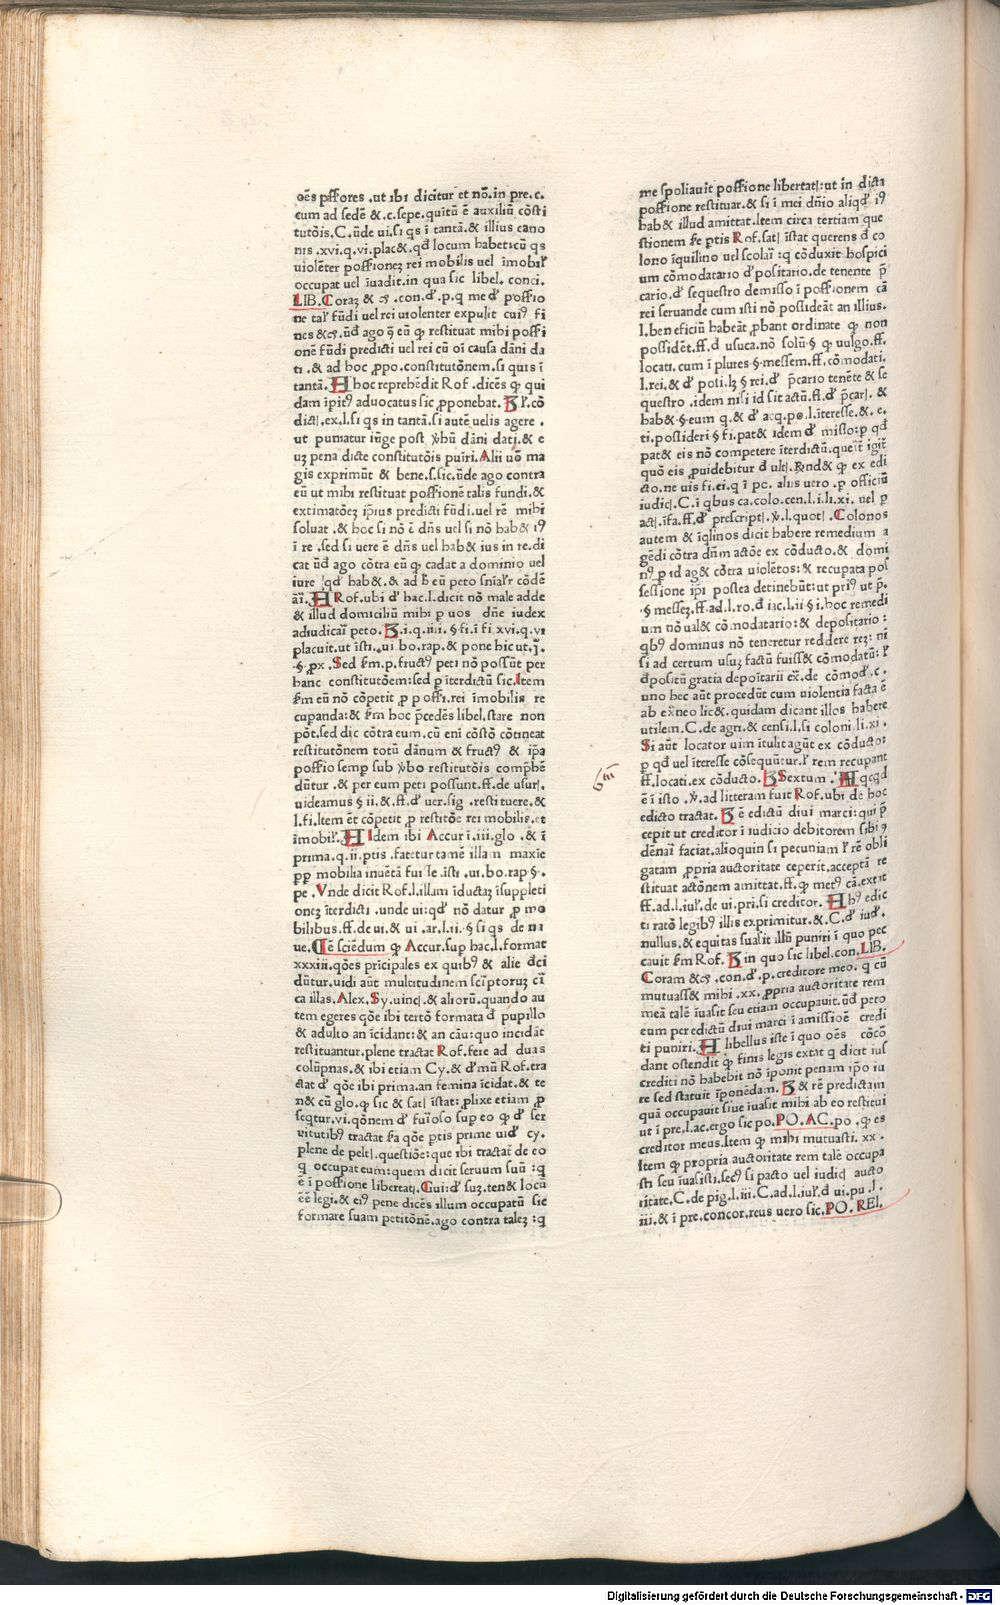 oēs pſſores .ut ibi dicitur et nō.in pre.c.
cum ad sedē & .c.sepe.quitū ē auxiliū cōsti
tutōis.C.ūde ui.si qs ī tantā.& illius cano
nis .xvi.q.vi.plac&.qđ locum habet:cū qs
uiolēter poſſionez rei mobilis uel īmobiłꝝ
occupat uel īuadit.in qua sic libel. conci.
LIB. Coraz & c̄ .con.đ .p.q me đ poſſio
ne tał fūdi uel rei uiolenter expulit cuiꝰ fi
nes &c̄.ūđ ago q̄ eū ꝙ restituat mihi poſſi
onē fūdi predicti uel rei cū oī causa dāni da
ti .& ad hoc ꝓpo.constitutōnem.si quis ī
tantā. H hoc reprehēdit Rof .dicēs ꝙ qui
dam īpitꝰ aduocatus sic ꝓponebat.
dict .ex.l.si qs in tantā.si autē uelis agere .
ut puniatur iūge post ꝟbū dāni dati.& e
uz pena dicte constitutōis puīri.Alii uō ma
gis exprimūt & bene.s.sic.ūde ago contra
eū ut mihi restituat poſſionē talis fundi.&
extimatōez ip̄ius predicti fūdi.uel rē mihi
soluat .& hoc si nō ē dn̄s uel si nō hab& iꝰ
ī re .sed si uere ē dn̄s uel hab& ius in re.di
cat ūđ ago cōtra eū ꝙ cadat a dominio uel
iure qđ hab&.& ad ħ eū peto snīałr cōdē
āi. H Rof.ubi đ hac.l.dicit nō male adde
& illud domiciliū mihi p uos dn̄e iudex
adiudicaī peto. .i.q.iiii.§.fi.ī fi.xvi.q.vi
placuit.ut īsti.ui bo.rap.& pone hic ut.j.
.§.ꝓx .Sed ẜm.p.fructꝰ peti nō poſſūt per
hanc constitutōem:sed p īterdictū sic.Item
ẜm eū nō cōpetit ꝓ p oſſi.rei īmobilis re
cupanda:& ẜm hoc p̄cedēs libel.stare non
pōt.sed dic cōtra eum.cū eni cōstō cōtineat
restitutōnem totū dānum & fructꝰ & ip̄a
poſſio semꝑ sub ꝟbo restitutōis comp̄hē
dūtur .& per eum peti poſſunt.ff.de usur.
uideamus § ii.& .ff.đ uer.sig .restituere.&
l.fi.Item et cōpetit ꝓ restitōe rei mobilis.et
īmobił. H Idem ibi Accur ī.iii.glo .& ī
prima.q.ii.ptis .fatetur tamē illam maxīe
ꝓp mobilia inuētā fuiſſe.īsti .ui.bo.rap §.
pe .Vnde dicit Rof.l.illam īductaz īsuppleti
onez īterdicti .unde ui:qđ nō datur ꝓ mo
bilibus.ff.de ui.& ui .ar.l.ii.§ si qs de na
ue.Cē sciēdum ꝙ Accur.sup hac.l.format
xxxiii.qōes prīcipales ex quibꝰ & alie đci
dūtur.uidi aūt multitudinem scīptoruz cī
ca illas.Alex.Sy.uinc.& aliorū.quando au
tem egeres qōe ibi tertō formata đ pupillo
& adulto an īcidant:& an cāu:quo incidāt
restituantur.plene tractat Rof.fere ad duas
colūpnas.& ibi etiam Cy.& đ mū Rof.tra
ctat đ qōe ibi prima.an femina īcidat.& te
n& cū glo.ꝙ sic & sat īstat:plixe etiam ꝓ
seqtur.vi.qōnem đ fuīoso sup eo ꝙ đ ser
uitutibꝰ tractat ẜa qōe ptis prime uiđ cy.
plene de pelt.questiōe:que ibi tractat de eo
q occupat eum:quem dicit seruum suū :q
ē ī poſſione libertat.Gui:đ suz.ten& locū
ēē legi.& eiꝰ pene dicēs illum occupatū sic
formare suam petitōnē.ago contra talez :q
me spoliauit poſſione libertat:ut in dicta
poſſione restituar.& si ī mei dn̄io aliqđ iꝰ
hab& illud amittat.Item circa tertiam que
stionem ẜe ptis Rof.sat īstat querens đ co
lono īquilino uel scolaī :q cōduxit hospici
um cōmodatario đpositario.de tenente p̄
cario.đ sequestro demisso ī poſſionem cā
rei seruande cum isti nō possideāt an illius.
l.beneficiū habeāt ꝓbant ordinate ꝙ non
possidēt.ff.đ usuca.nō solū § ꝙ uulgo.ff.
locati.cum ī plures §.messem.ff.cōmodati.
l.rei.& đ posi.lꝫ § rei.đ p̄cario tenēte & se
questro .idem nisi id sit actū.ff.đ p̄car.&
hab&.§.eum q.& đ acq.po.l.īteresse.& .c.
ti.possideri § fi.pat& idem đ misso:p qđ
pat& eis nō competere īterdictū.queīt igit
quō eis ꝓuidebitur đ ult.Rnd& ꝙ ex edi
cto.ne uis fi.ei.q ī po. alius uero .p officiū
iudic.C.ī qbus ca.colo.cen.l.i.li.xi. uel p
act.īfa.ff.đ prescript.ꝟ.l.quot.Colonos
autem & īqlinos dicit habere remedium a
gēdi cōtra dn̄m actōe ex cōducto.& domi
nꝰ p id ag& cōtra uiolētos:& recupata pos
sessione ip̄i postea detinebūt:ut priꝰ ut p̄.
.§ messez.ff.ad.l.ro.đ iac.l.ii § i.hoc remedi
um nō ual& cōmodatario:& depositario:
qbꝰ dominus nō teneretur reddere rez: ni
si ad certum usuz factū fuiss& cōmodatū:ł
đpositū gratia depoītarii ex.de cōmod .c.
uno hec aūt procedūt cum uiolentia facta ē
ab ex̄neo lic&.quidam dicant illos habere
utilem.C.de agri.& censi.l.si coloni.li.xi .
Si aūt locator uim ītulit agūt ex cōducto:
p qđ uel īteresse cōsequūtur.ł rem recupant
ff.locati.ex cōducto. Sextum . H qcqđ
ē ī isto .ꝟ.ad litteram fuit Rof.ubi de hoc
edicto tractat. ē edictū diui marci:qui p̄
cepit ut creditor ī iudicio debitorem sibi ꝯ
dēnaī faciat.alioquin si pecuniam ł rē obli
gatam ꝓpria auctoritate ceperit.acceptā re
stituat actōnem amittat.ff.ꝙ metꝰ cā.extat
ff.ad.l.iuł.de ui.pri.si creditor. H hꝰ edic
ti ratō legibꝰ illis exprimitur.& .C.đ iuđ.
nullus.& equitas suasit illū puniri ī quo pec
cauit ẜm Rof. in quo sic libel.con.LIB.
Coram & c̄ .con.đ .p.creditore meo. q cū
mutuass& mihi .xx. ꝓpria auctoritate rem
meā talē īuasit seu etiam occupauit.ūđ peto
eum per edictū diui marci ī amissioē credi
ti puniri. H libellus iste ī quo oēs cōcō
dant ostendit ꝙ finis legis extat q dicit ius
crediti nō habebit nō īponit penam ip̄o iu
re sed statuit īponēdam. & rē predictam
quā occupauit siue īuasit mihi ab eo restitui
ut ī pre.l.ac.ergo sic po.PO.AC.po .ꝙ es
creditor meus.Item ꝙ mihi mutuasti. xx .
Item ꝙ propria auctoritate rem talē occupa
sti seu īuasisti.secꝰ si pacto uel iudic aucto
ritate.C.de pig.l.iii.C.ad.l.iuł.đ ui.pu .l .
iii.& ī pre.concor.reus uero sic.PO. REI.
6m
Digitalisierung gefördert durch die Deutsche Forschungsgemeinschaft - DFG